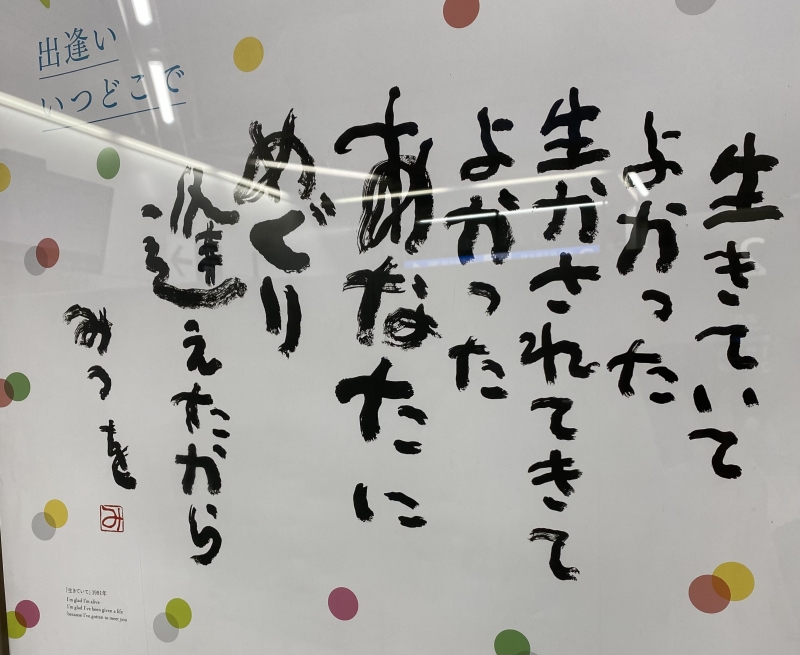 出逢い
いつどこで
生きていて
よかった
生かされてきて
よかった
あなたに
めぐり
逢えたから
みつを
み
「生きていて」1981年
I'm glad I'm alive
I'm glad I've been given a life
because I've gotten to meet you